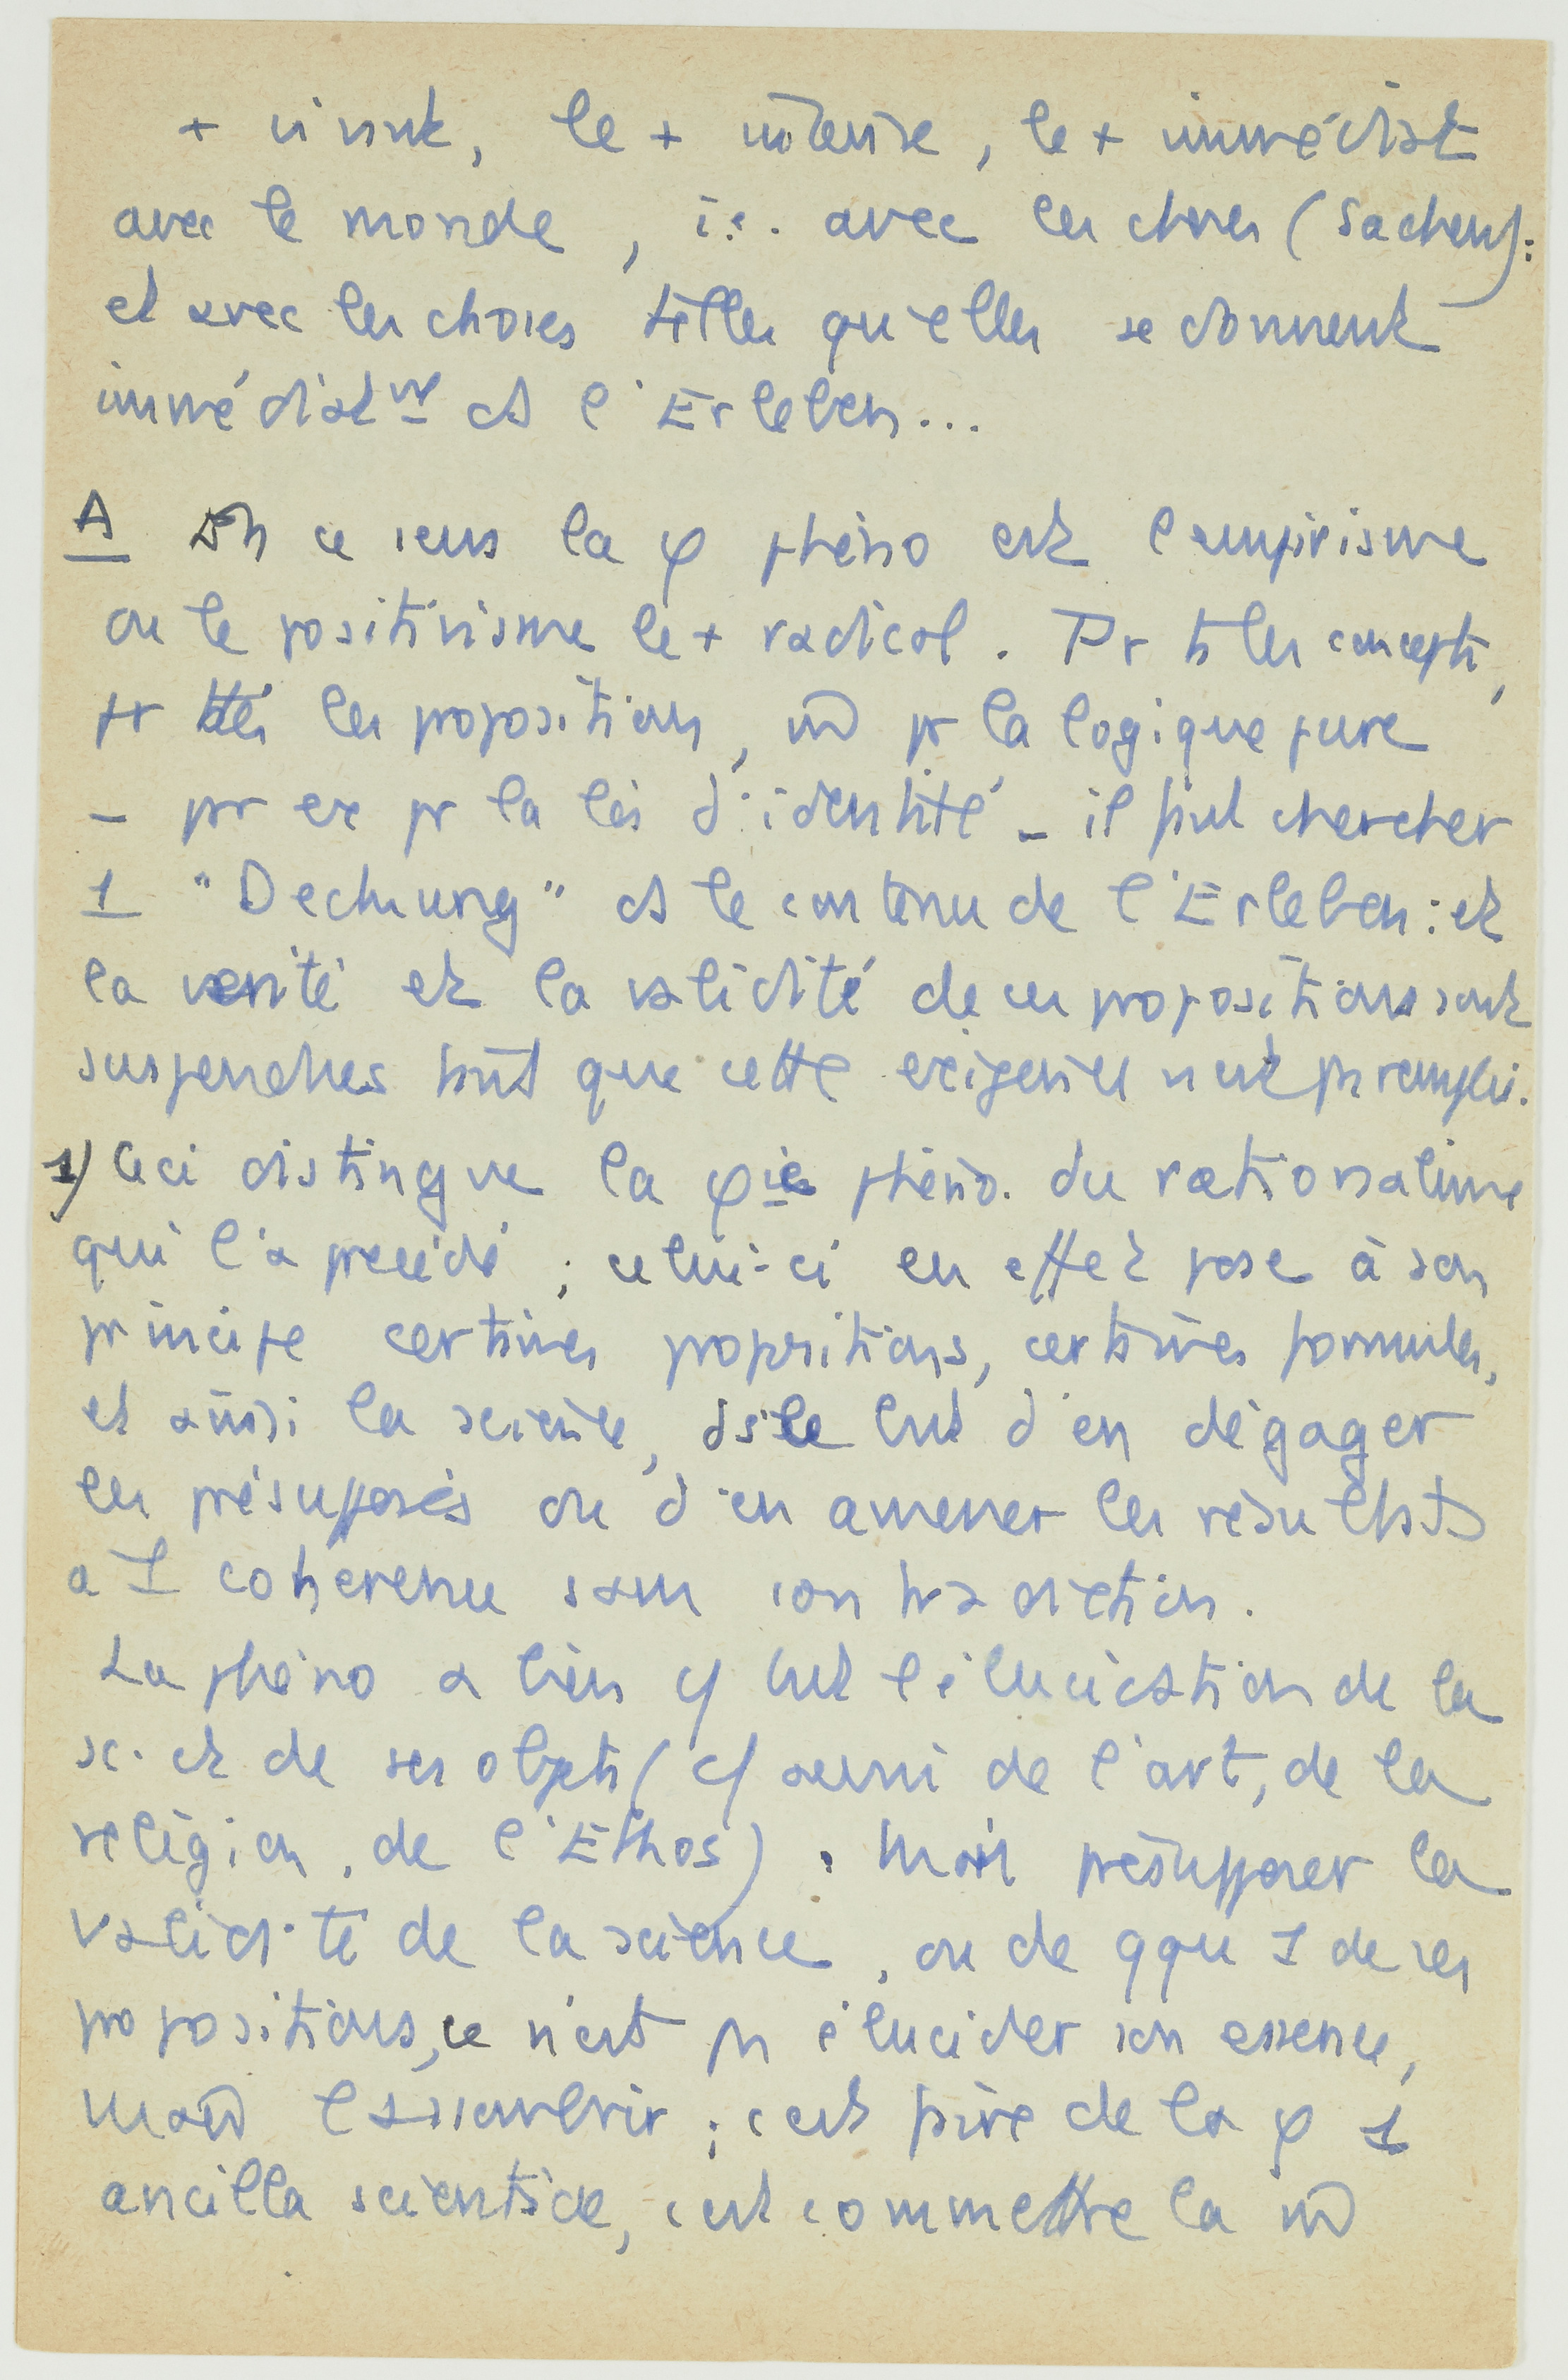 + vivant, le + intense, le + immédiat
avec le monde, i.e. avec les choses (Sachen) :
et avec les choses telles qu'elles se donnent
immédiatmt ds l'Erleben...
A En ce sens la φ phéno est l'empirisme
ou le positivisme le + radical. Pr ts les concepts,
pr ttes les propositions, m̂ pr la logique pure
– pr ex pr la loi d'identité – il faut chercher
1 "Deckung" ds le contenu de l'Erleben : et
la vérité et la validité de ces propositions sont
suspendues tant que cette exigence n'est pas remplie.
1) Ceci distingue la φie phéno. du rationalisme
qui l'a précédé ; celui-ci en effet pose à son
principe certaines propositions, certaines formules,
et ainsi la science, ds le but d'en dégager
les présupposés ou d'en amener les résultats
a 1 cohérence sans contradiction.
La phéno a bien cf but l'élucidation de la
sc. et de ses objets (cf aussi de l'art, de la
religion, de l'Ethos). Mais présupposer la
validité de la science, ou de qqu 1 de ses
propositions, ce n'est pas élucider son essence,
mais l'assombrir ; c'est faire de la φ 1
ancilla scientiae, c'est commettre la m̂